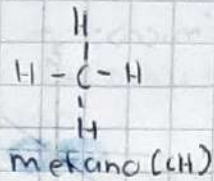 H
H - C - H
H
metano (CH)